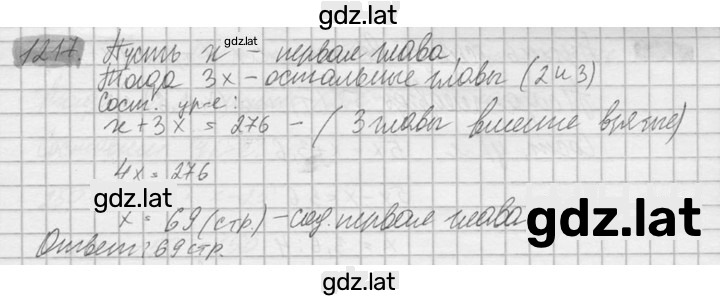 gdz.lat
1217. Пусть x - первая глава
gdz.lat
Тогда 3x - остальные главы (2 и 3)
Сост. ур-е:
x + 3x = 276 - (3 главы вместе взятые)
4x = 276
gdz.lat
x = 69 (стр.) - сод. первая глава
Ответ: 69 стр.
gdz.lat
gdz.lat